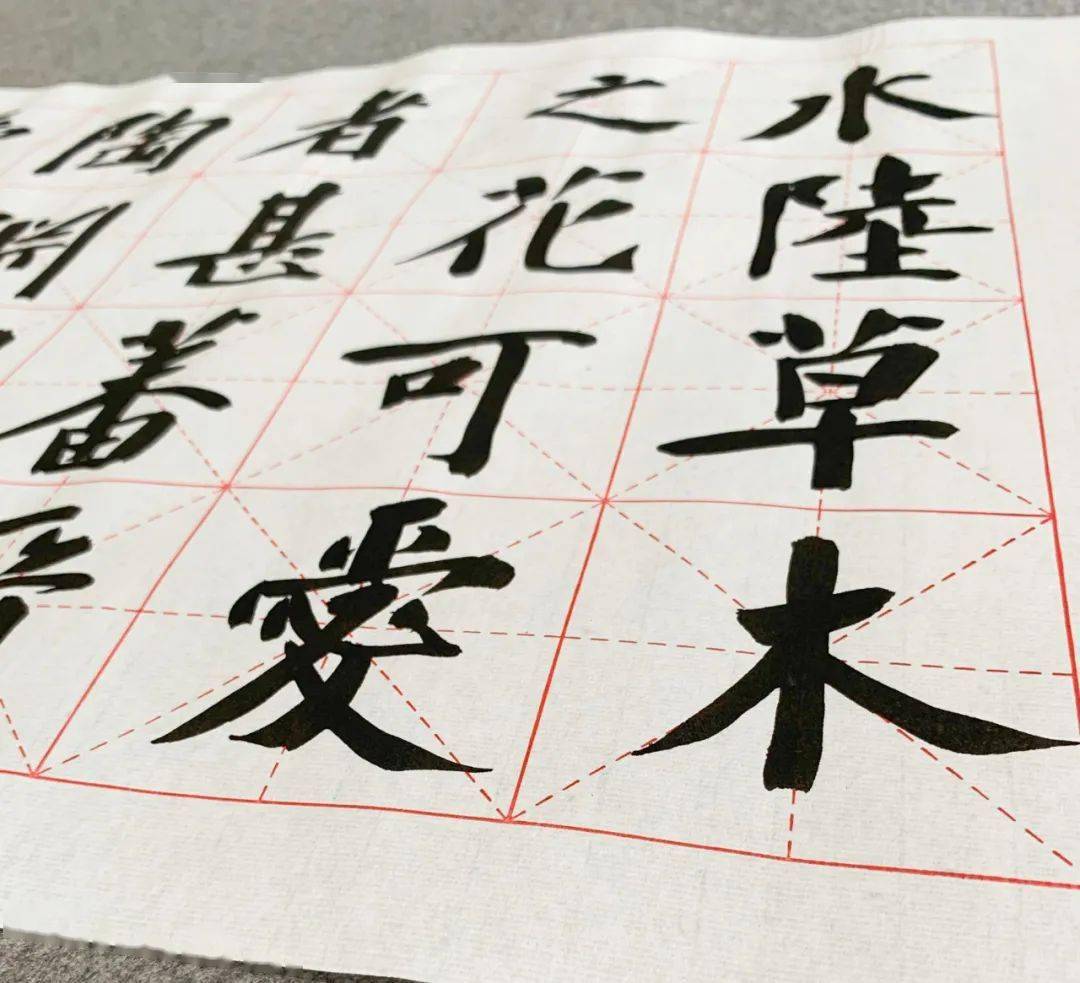 水陸草木
之花可愛
者甚蕃
陶